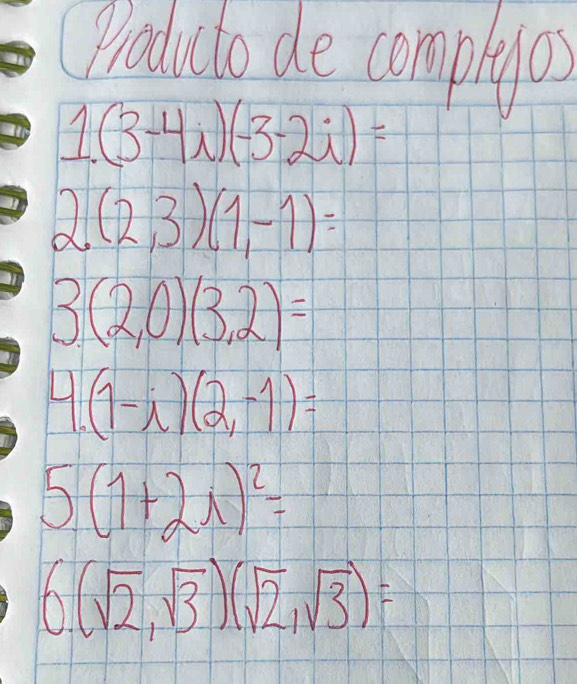 Producto de complejos
1.(3-4i)(-3-2i)=
2.(2,3)(1,-1)=
3.(2,0)(3,2)=
4.(1-i)(2,-1)=
5(1+2i)²=
6.(√2,√3)(√2,√3)=